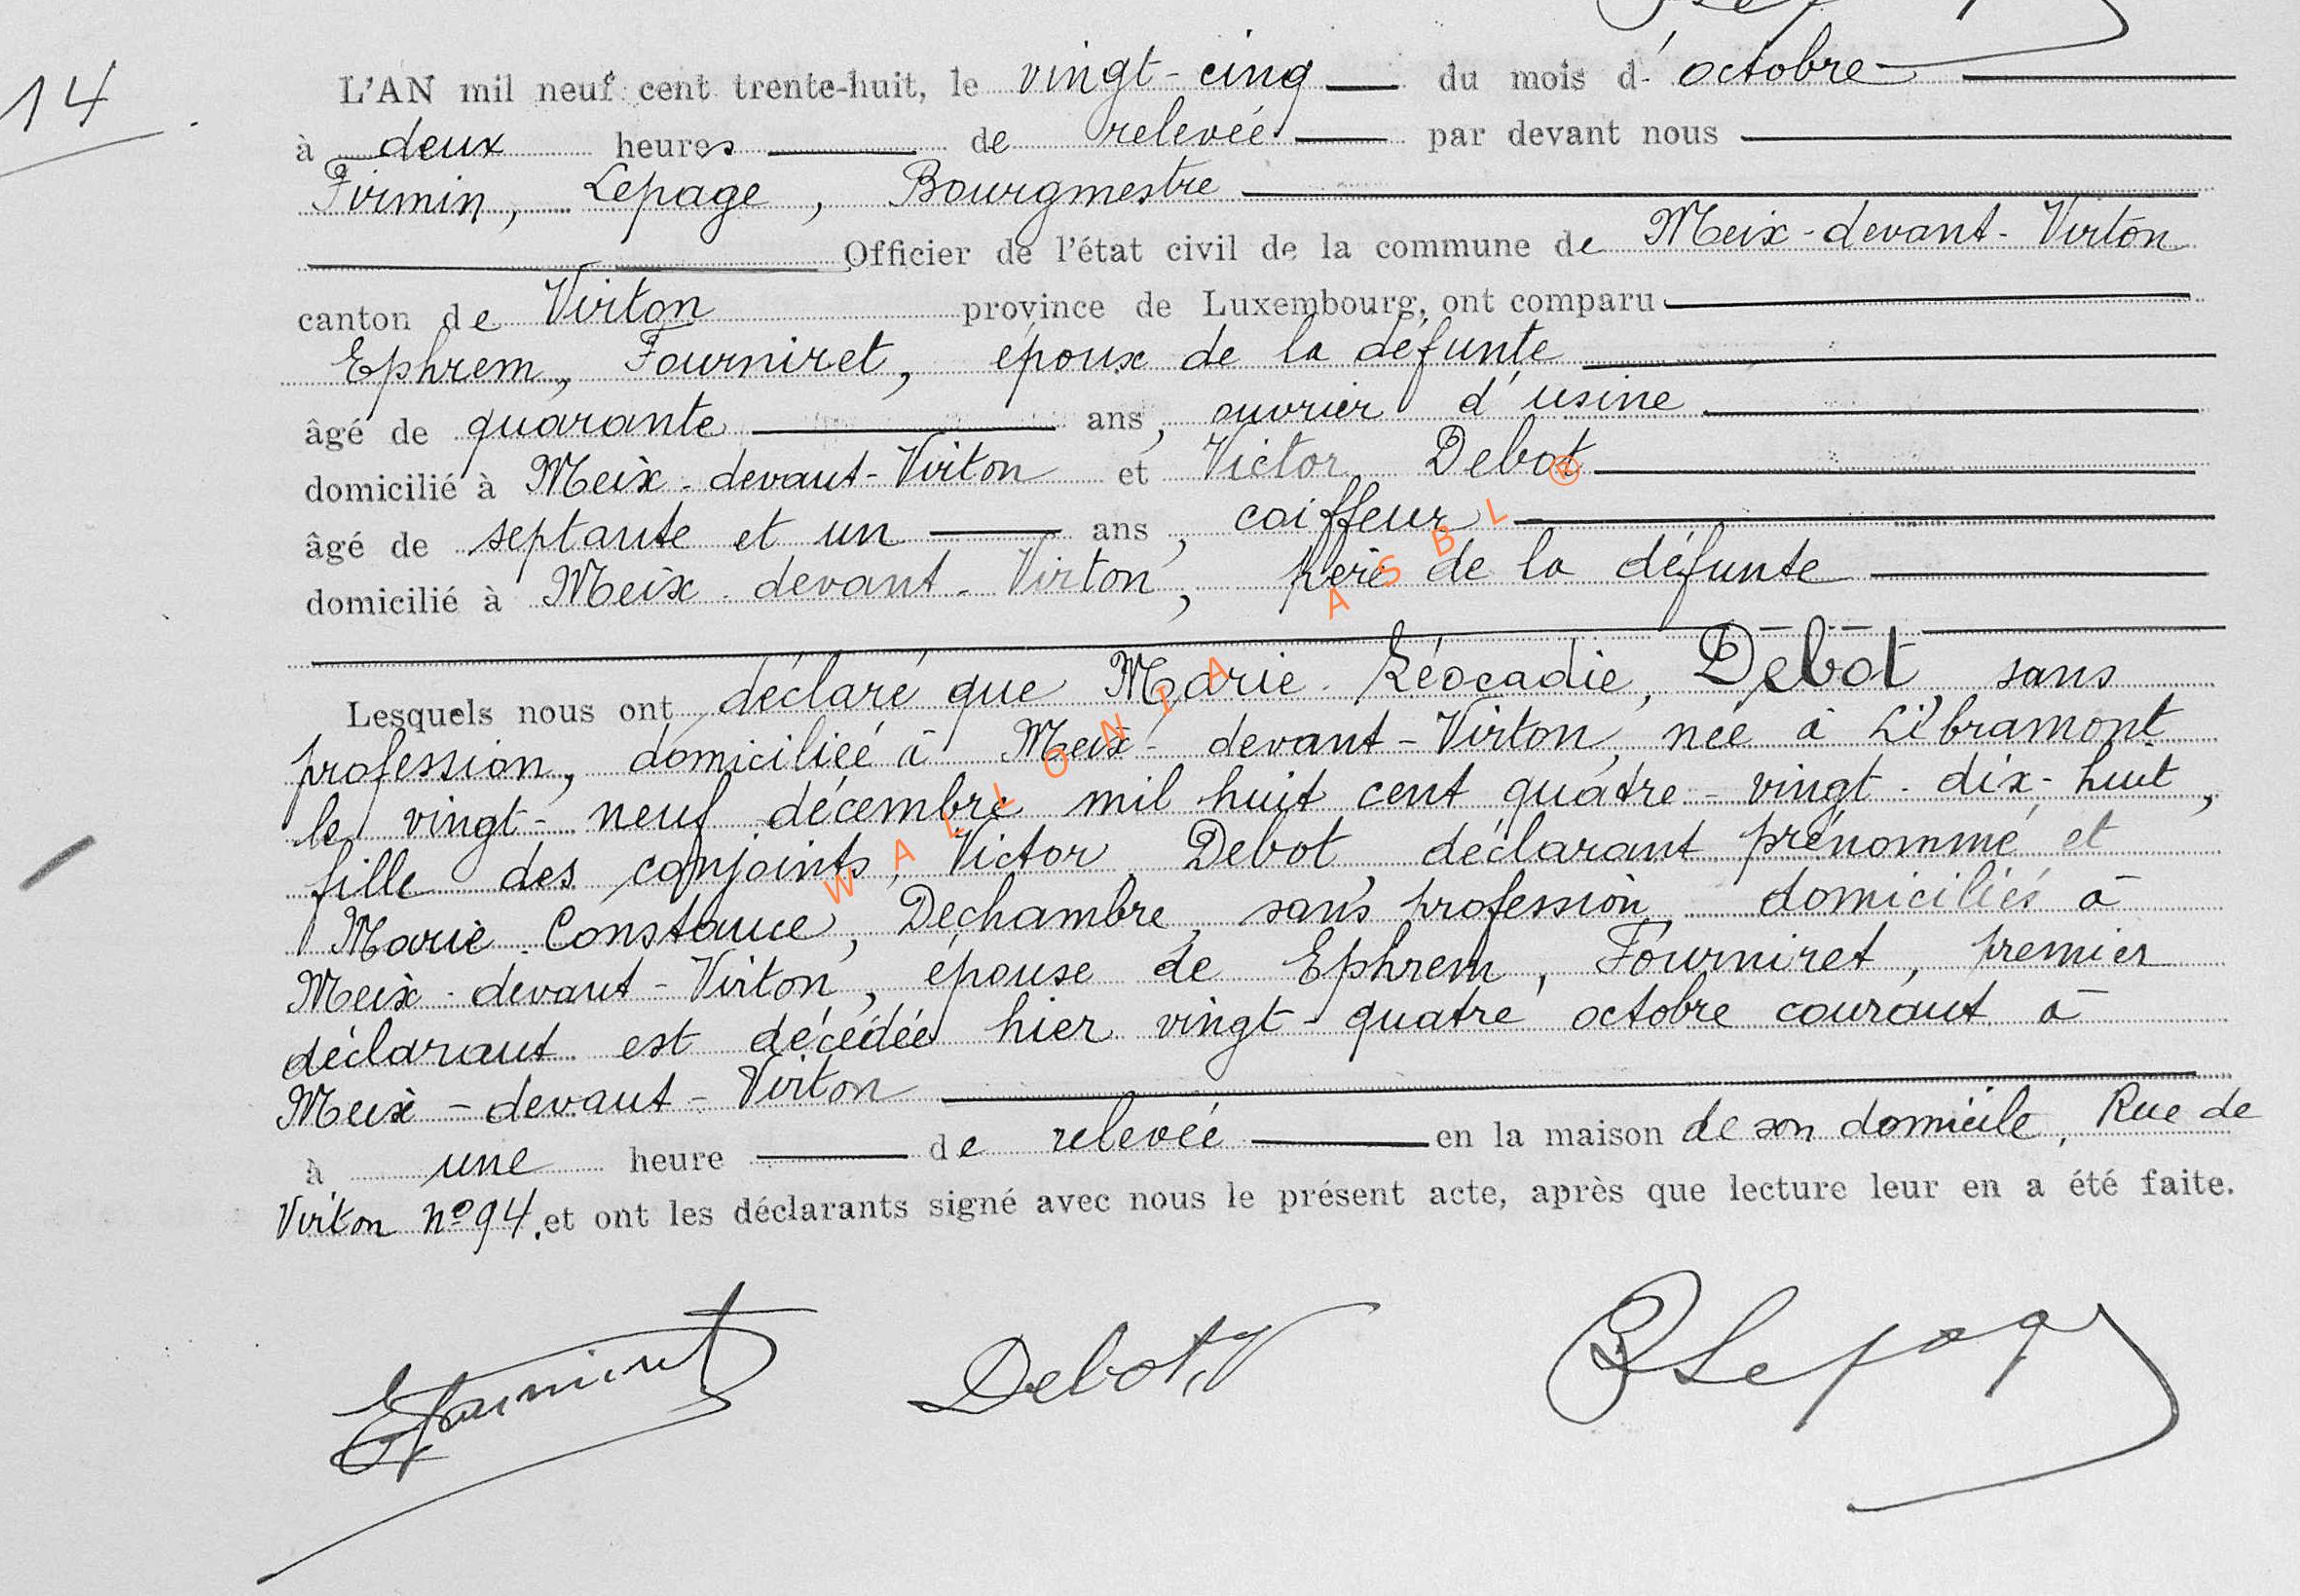 14
L'AN mil neuf cent trente-huit, le vingt-cinq du mois d' octobre
à deux heures de relevée par devant nous
Firmin, Lepage, Bourgmestre
Officier de l'état civil de la commune de Meix-devant-Virton
canton de Virton province de Luxembourg, ont comparu
Ephrem, Fourniret, époux de la défunte
âgé de quarante ans, ouvrier d'usine
domicilié à Meix-devant-Virton et Victor Debot
âgé de septante et un ans, coiffeur
domicilié à Meix-devant-Virton, père de la défunte
Lesquels nous ont déclaré que Marie-Léocadie, Debot, sans
profession, domiciliée à Meix-devant-Virton, née à Libramont
le vingt-neuf décembre mil huit cent quatre-vingt-dix-huit,
fille des conjoints, Victor Debot, déclarant prénommé et
Marie-Constance, Dechambre, sans profession, domiciliés à
Meix-devant-Virton, épouse de Ephrem, Fourniret, premier
déclarant est décédée hier vingt-quatre octobre courant à
Meix-devant-Virton
à une heure de relevée en la maison de son domicile, Rue de
Virton n° 94. et ont les déclarants signé avec nous le présent acte, après que lecture leur en a été faite.
EFourniret Debot.V Lepage
WALLONIA ASBL ®